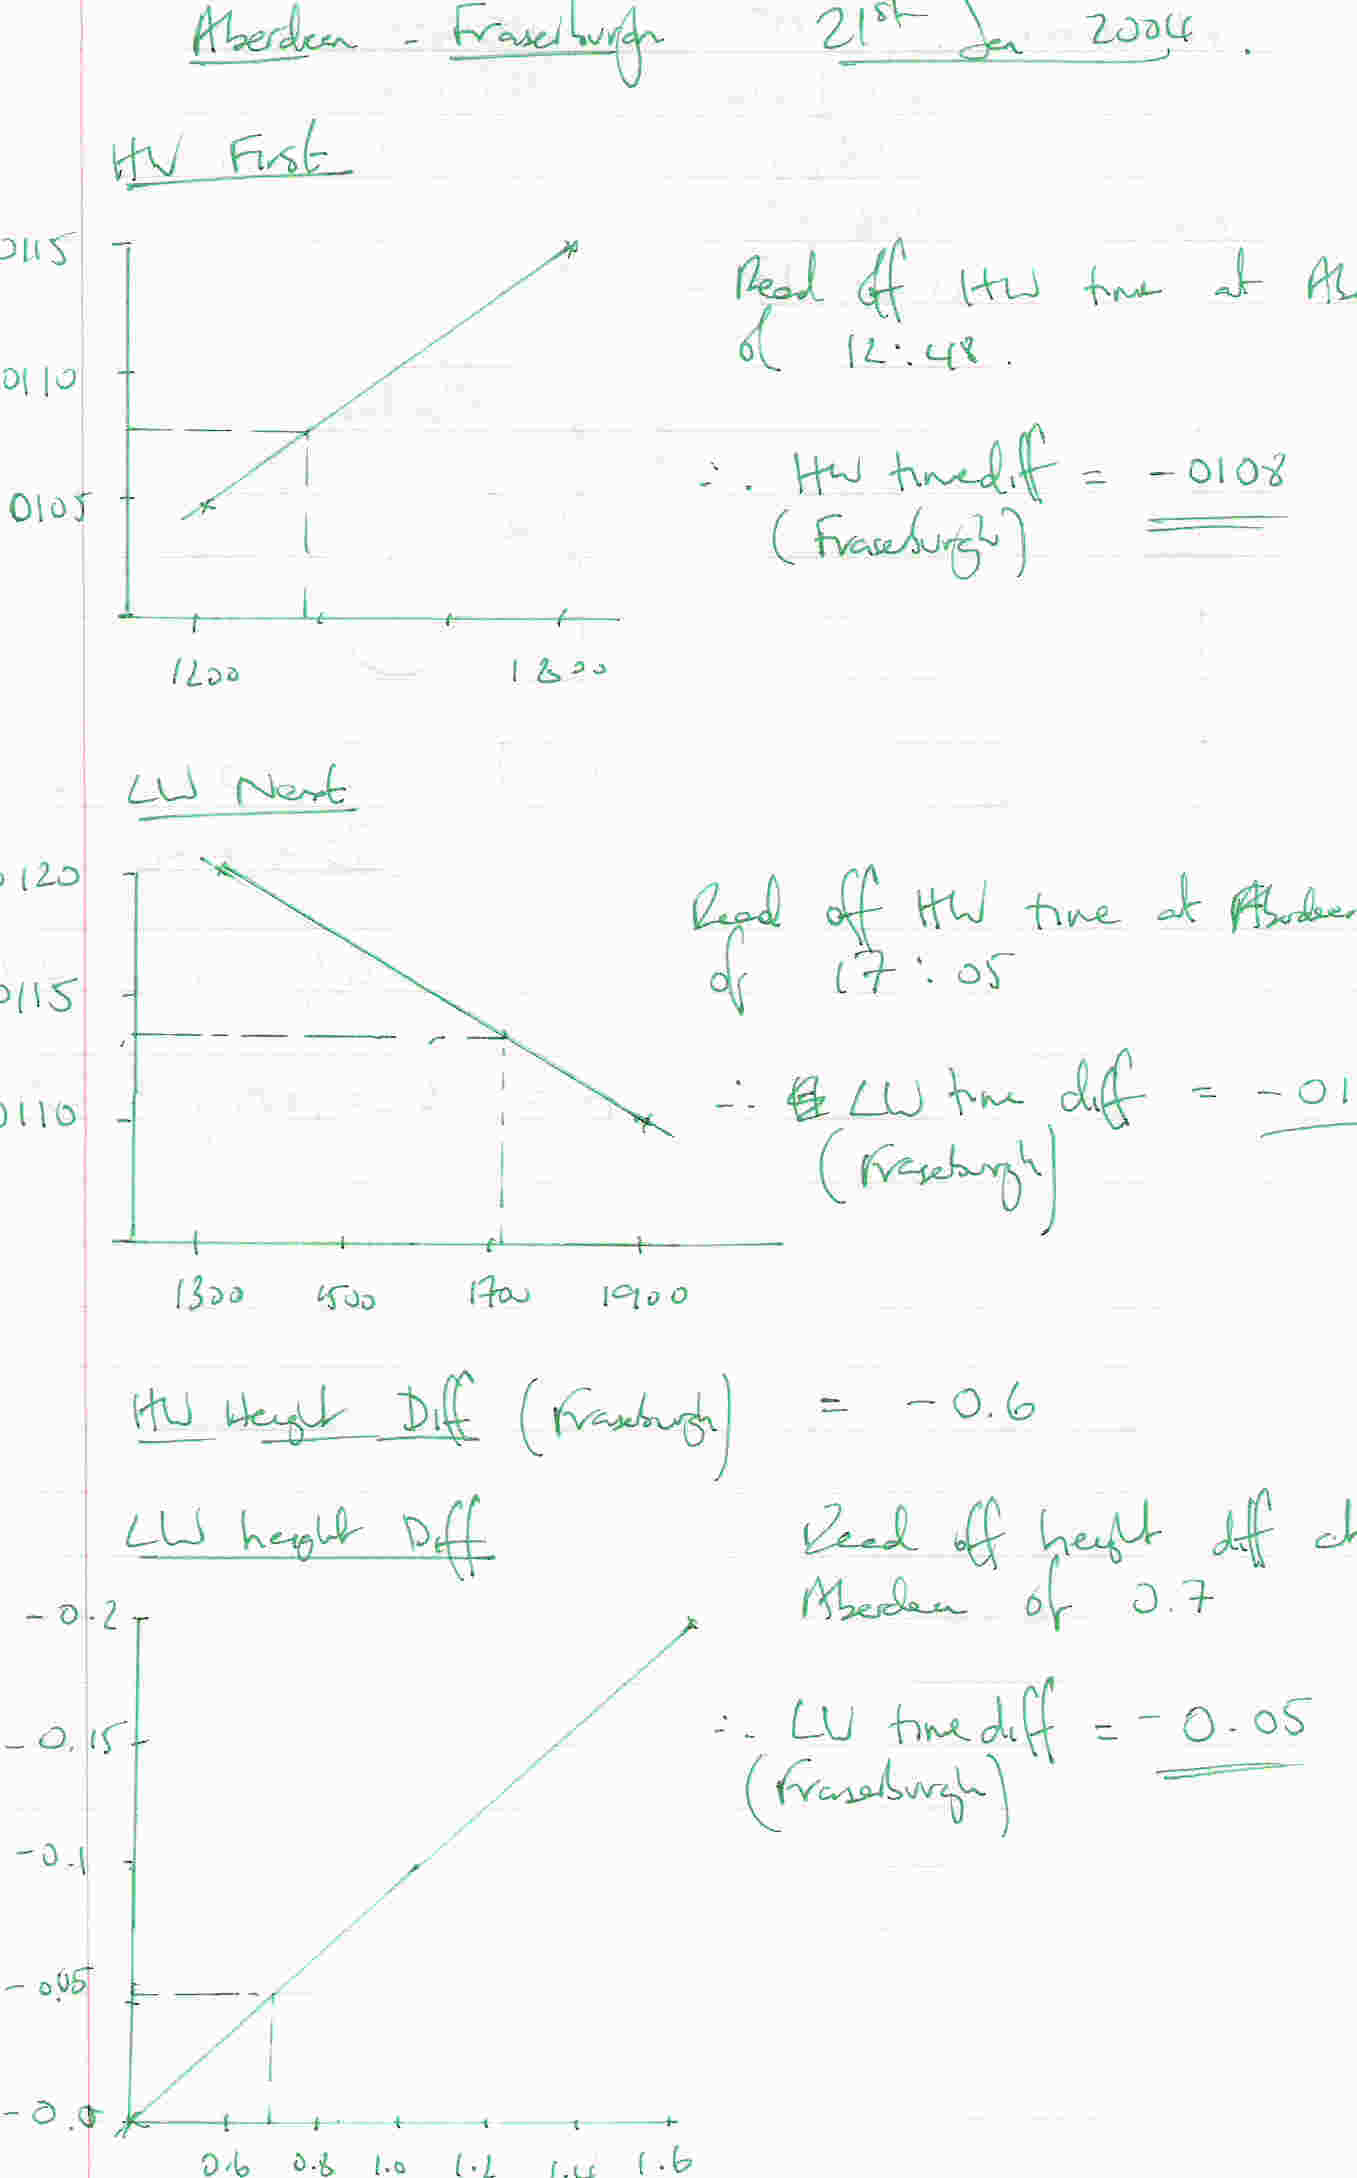 Aberdeen - Fraserburgh 21st Jan 2004.
HW First
0115
0110
0105
1200 1800
Read off HW time at Ab
of 12:48.
∴ HW time diff = -0108
(Fraseburgh)
LW Next
0120
0115
0110
1300 1500 1700 1900
Read off HW time at Aberdeen
of 17:05
∴ LW time diff = -01
(Fraseburgh)
HW Height Diff (Fraseburgh) = -0.6
LW height Diff
-0.2
-0.15
-0.1
-0.05
-0.0
0.6 0.8 1.0 1.2 1.4 1.6
Read off height diff at
Aberdeen of 0.7
∴ LW time diff = -0.05
(Fraserburgh)